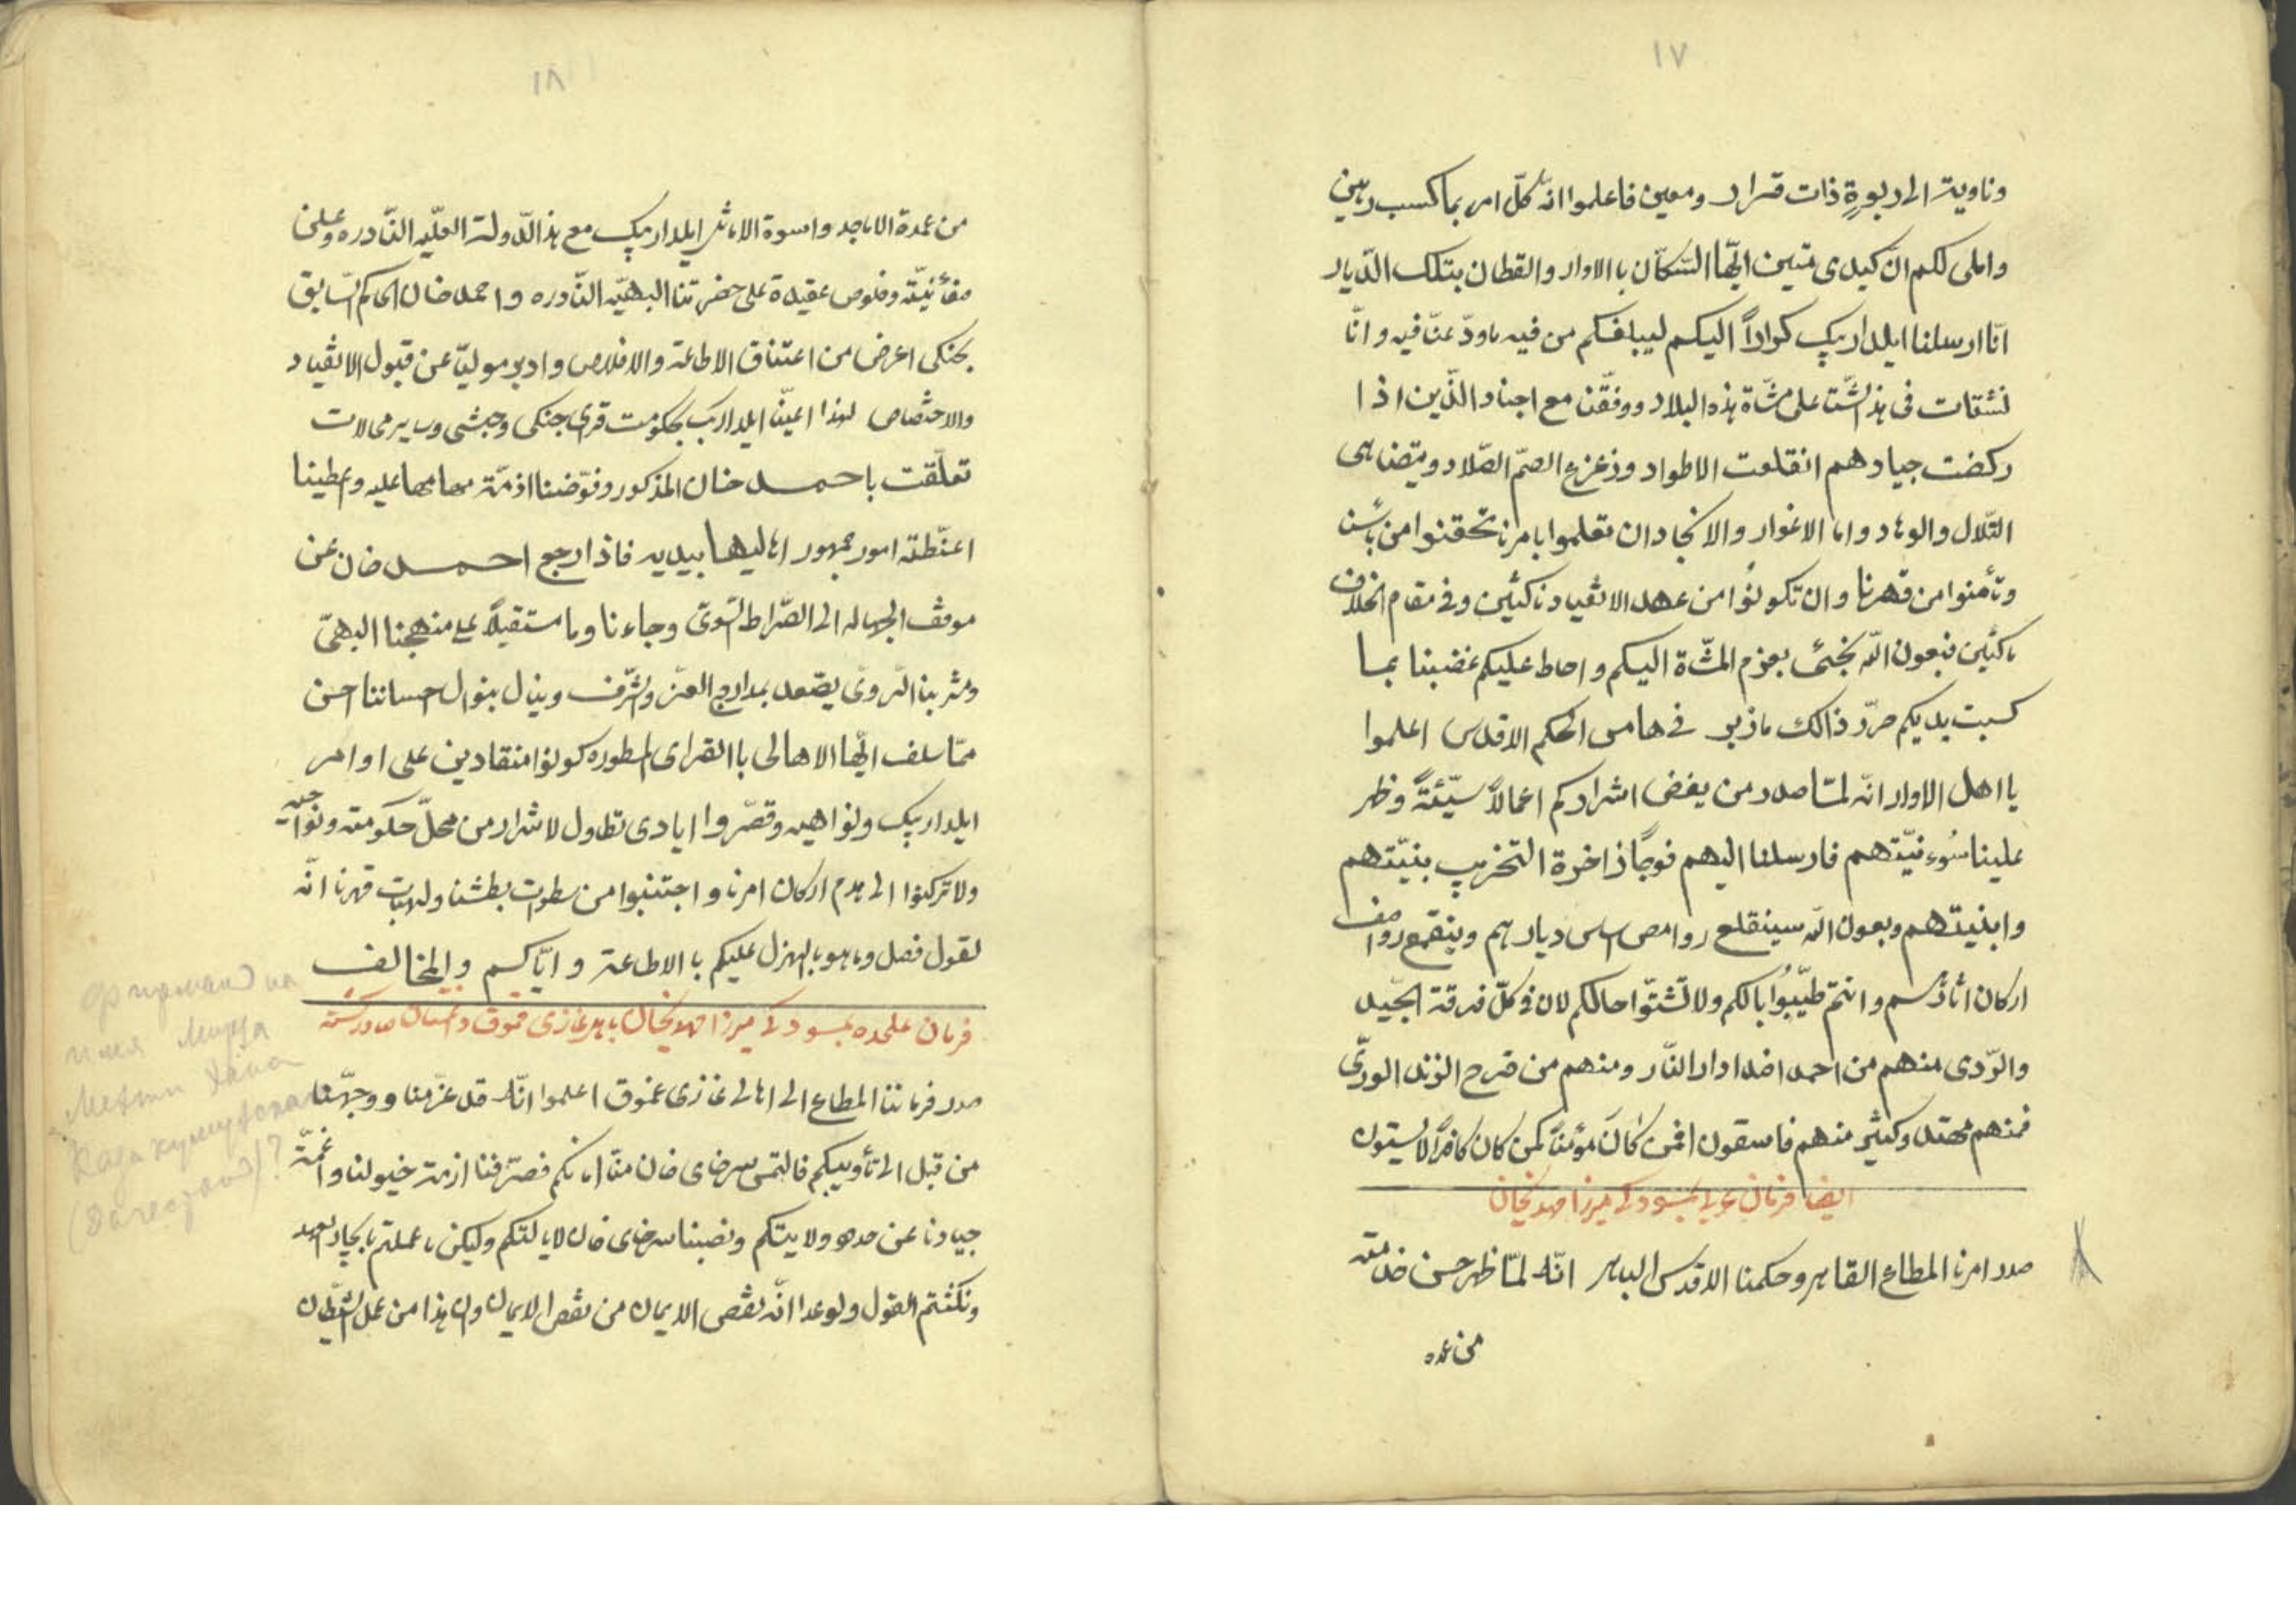 ١٧
وناوية الى ربورة ذات قرار ومعين فاعلموا انه كلّ امر بما كسب رهين
واملى لكم انّ كيدى متين ايّها السّكّان با الاوار والقطان بتلك الدّيار
انّا ارسلنا ايلدار بيك كواراً اليكم ليبلغكم من فيه ما ودّعنّا فيه و انّا
فى هذ الشّتا على مشّاة هذه البلاد ووفّقن مع اجناد الّذين اذا
ركضت جيادهم انقلعت الاطواد وزعزع الصمّ الصّلاد ويتضاهى
التّلال والوهاد واما الاغوار والانجاد ان تعلموا بامرنا تحقنوا من بأسنا
وتأمنوا من قهرنا وان تكونُوا من عهد الانقياد ناكثين وفى مقام الخلاف
ماكثين فبعون الله نجئ بعزم المشّاة اليكم واحاط عليكم غضبنا بما
كسبت يديكم حرّر ذالك ماذبر فى هامس الحكم الاقدس اعلموا
يا اهل الاوار انّه لمّا صدر من بعض اشراركم اعمالاً سيّئةً وظهر
علينا سُوء نيّتهم فارسلنا اليهم فوجاً ذاخرة التخريب بنيّتهم
وابنيتهم وبعون الله سينقلع روامص اساس ديارهم وينقمع رواصف
اركان اثارهم وانتم طيّبُوا بالكم ولا تشتّوا حالكم لان فى كلّ فرقة الجيّد
والرّدى منهم من احمد اضداوار النّار ومنهم من قدح الزند الورىّ
فمنهم مهتد وكثير منهم فاسقون افمن كانَ مؤمناً كمن كان كافراً لا يستون
ايضا فرمان عربى بمسوده ميرزا مهديخان
صدر امرنا المطاع القاهر وحكمنا الاقدس الباهر انّه لمّا ظهر حسن خدامته
من عمده
١٨
من عمدة الاماجد واسوة الاماثر ايلدار بيك مع هذ الدّولة العليّه النّادره وعلن
وخلوص عقيدة على حضرتنا البهيّه النّادره واحمد خان الحاكم السّابق
بجنكى اعرض من اعتناق الاطاعة والاخلاص وادبر موليّا عن قبول الانقياد
والاختصاص لهذا اعينّا ايلدار بك بحكومت قرى جنكى وجبشى وساير محالات
تعلّقت باحمد خان المذكور وفوّضنا اذمّة مهامها عليه وعطينا
اعنّطة امور جمهور اهاليها بيديه فاذا رجع احمد خان عن
موقف الجهاله الى الصّراط السّوىّ وجاءنا وما مستقيلاً على منهجنا البهىّ
ومشربنا الرّوىّ يصّعد بمدارج العزّ والشّرف وينال بنوال حساننا احسن
ممّا سلف ايّها الاهالى با القراى المطوره كونوا منقادين على اوامر
ايلدار بيك ونواهيه وقصّروا ايادى تطاول لاشرار من محلّ حكومته ونواحيه
ولا تركنوا الى هدم اركان امرنا واجتنبوا من سطوات بطشنا ولهبات قهرنا انّه
لقول فصل وما هو بالهزل عليكم با الاطاعة وايّاكم والمخالف
فرمان علحده بمسوده ميرزا مهديخان باهل غازى قموق داغستان صادر شده
صدر فرماننا المطاع الى اهالى غازى غموق اعلموا انّه قد عزّمنا ووجّهنا
من قبل الى تأديبكم فالتمس سرخاى خان منّا امانكم فصرّفنا ازمة خيولنا واعنّة
جيادنا عن حدود ولايتكم ونصبنا سرخاى خان لايالتكم وليكن ما عملتم بايجاد العهد
ونكثتم القول ولوعدا انّه نقص الايمان من نقص الايمان وان هذا من عمل الشّيطان
Фирман на
имя Мирза
Мехти Хана
Казикумухского
(Дагестан)?